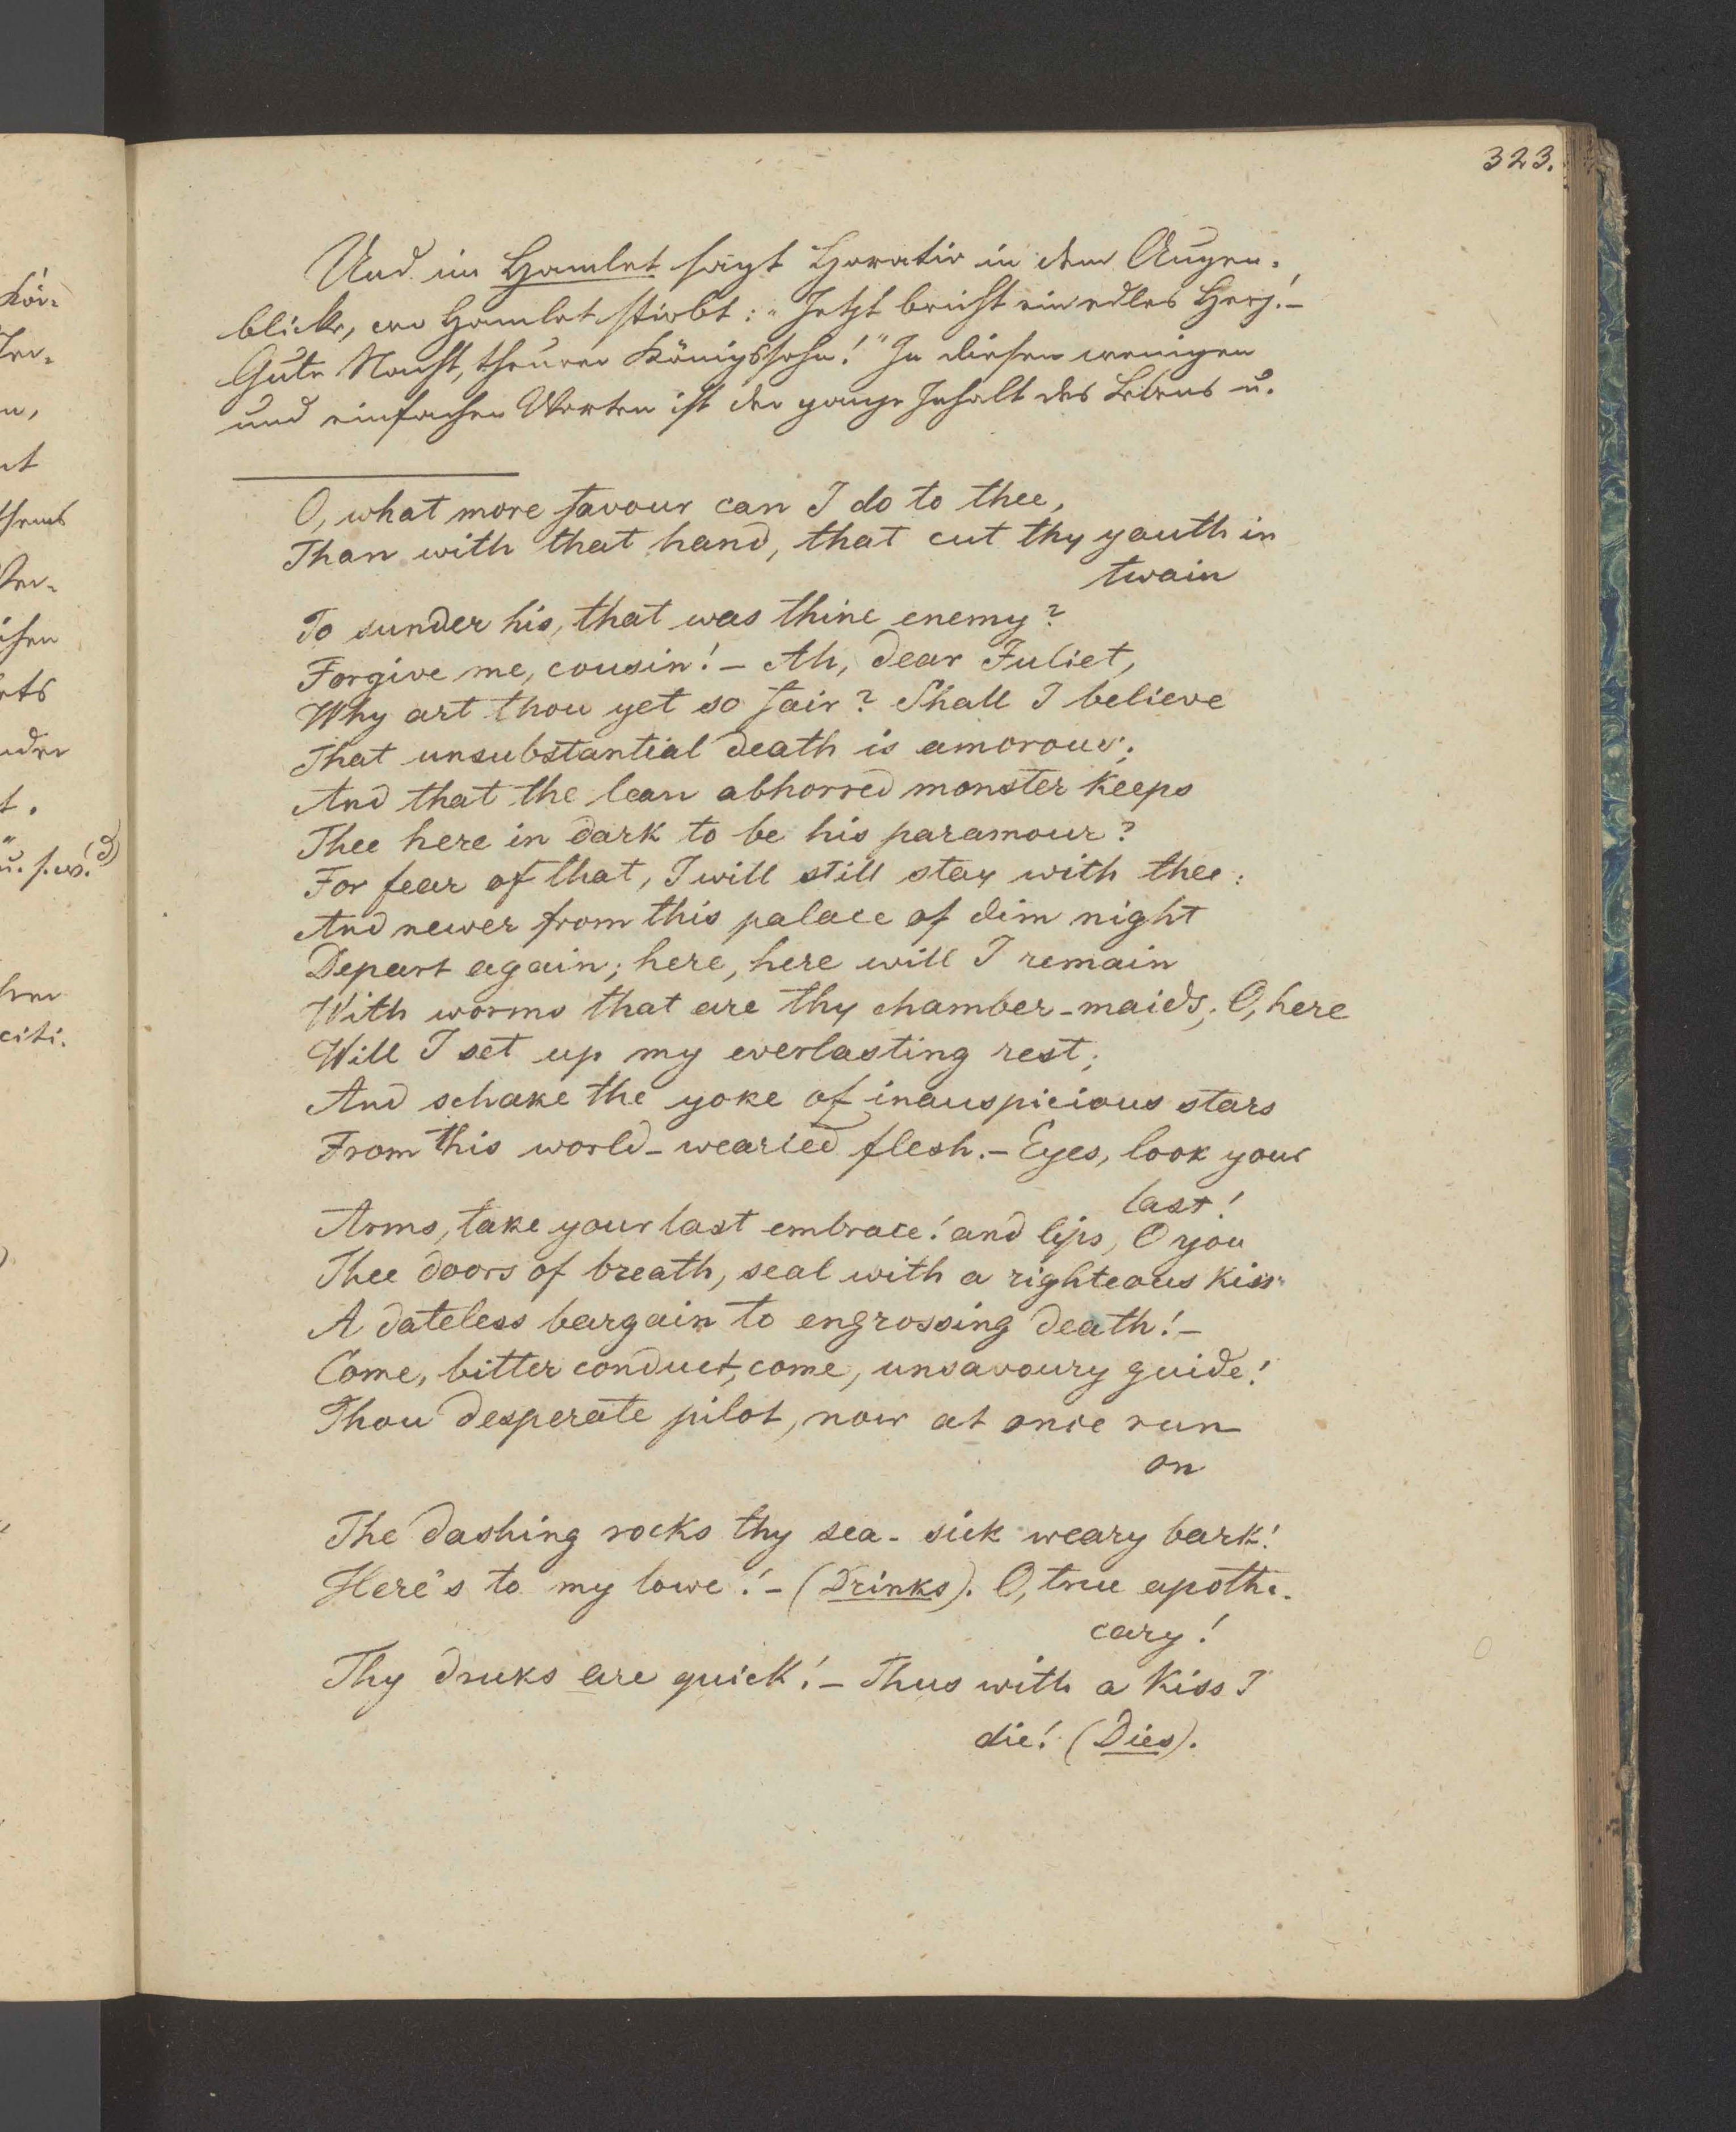 323.
Und im Hamlet sagt Horatio in dem Augen-
blicke, wo Hamlet stirbt: „Jetzt bricht ein edles Herz! –
Gute Nacht, theurer Königssohn!" In diesen wenigen
und einfachen Worten ist der ganze Inhalt des Lebens u.
O, what more favour can I do to thee,
Than with that hand, that cut thy youth in
twain
To sunder his, that was thine enemy?
Forgive me, cousin! – Ah, dear Juliet,
Why art thou yet so fair? Shall I believe
That unsubstantial death is amorous;
And that the lean abhorred monster keeps
Thee here in dark to be his paramour?
For fear of that, I will still stay with thee:
And newer from this palace of dim night
Depart again; here, here will I remain
With worms that are thy chamber-maids; O, here
Will I set up my everlasting rest;
And schake the yoke of inauspicious stars
From this world-wearied flesh. – Eyes, look your
last!
Arms, take your last embrace! and lips, O you
Thee doors of breath, seal with a righteous kiss
A dateless bargain to engrossing death! –
Come, bitter conduct, come, unsavoury guide!
Thou desperate pilot, now at once run
on
The dashing rocks thy sea-sick weary bark!
Here's to my lowe! – (Drinks). O, true apothe-
cary!
Thy druks are quick! – Thus with a kiss I
die! (Dies).